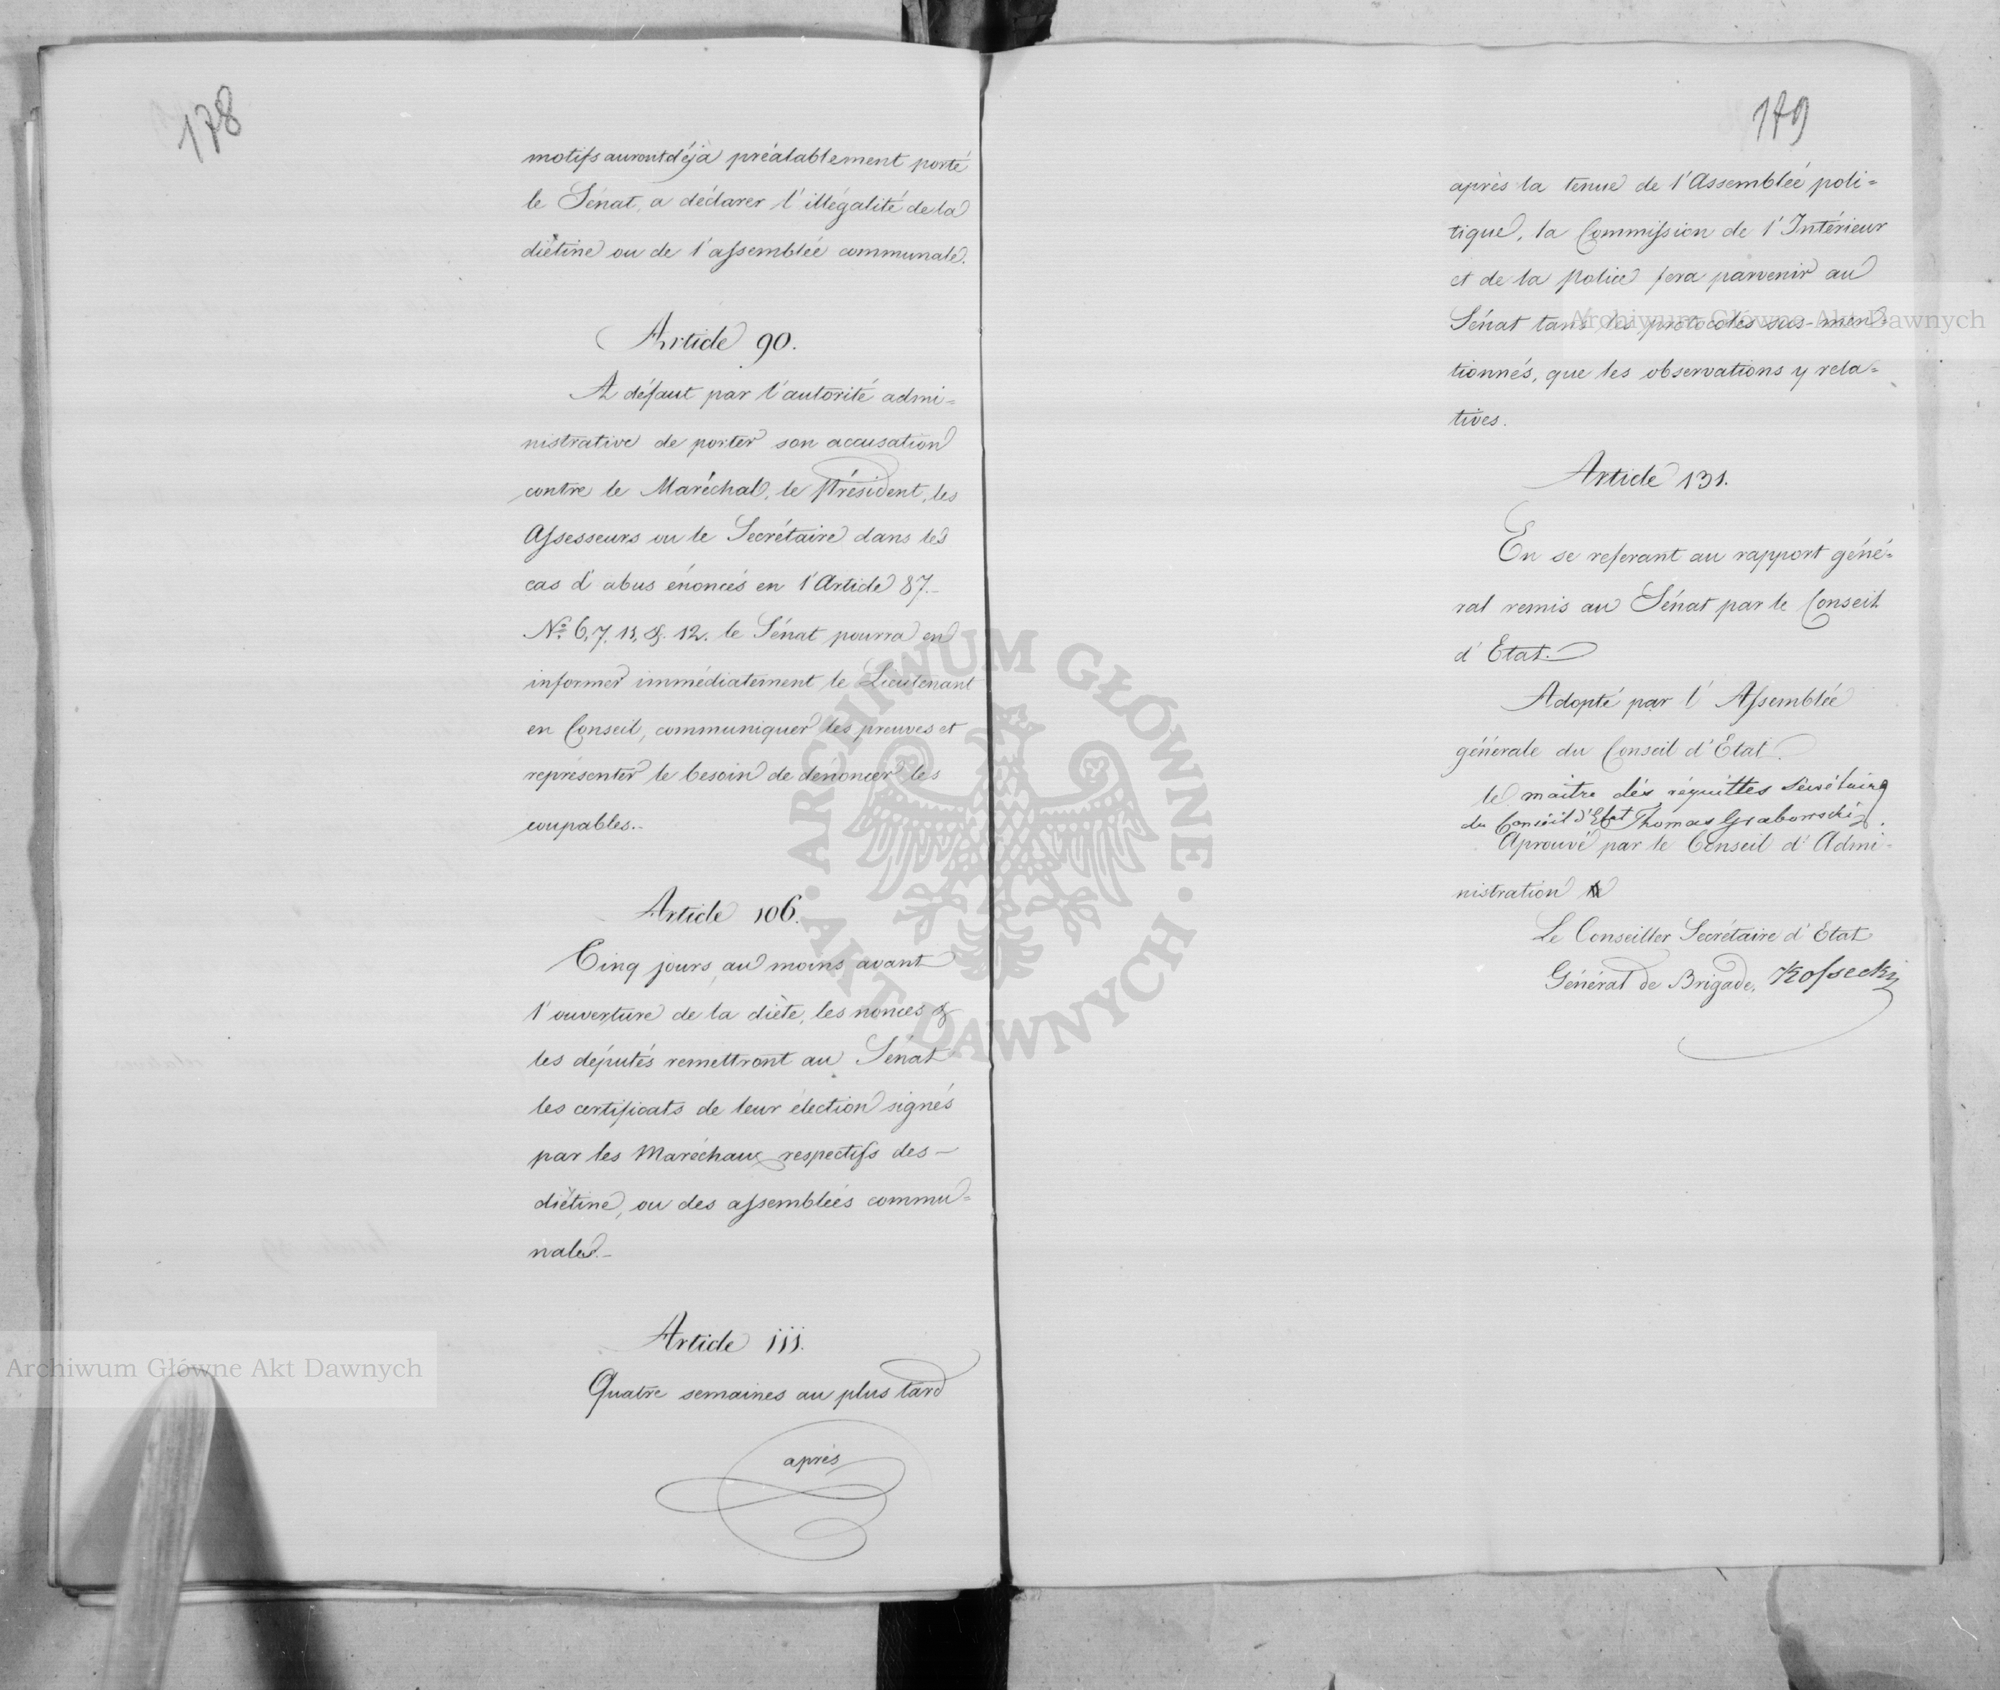 178
motifs auront déjà préalablement porté
le Sénat, a déclarer l'illégalité de la
diètine ou de l'assemblée communale.
Article 90.
A défaut par l'autorité admi=
nistrative de porter son accusation
contre le Maréchal, le Président, les
Assesseurs ou le Secrétaire dans les
cas d'abus énoncés en l'Article 87.-
No. 6, 7, 11, & 12. le Sénat pourra en
informer immédiatement le Lieutenant
en Conseil, communiquer les preuves et
représenter le besoin de dénoncer les
coupables..
Article 106.
Cinq jours au moins avant
l'ouverture de la diète, les nonces &
les députés remettront au Sénat
les certificats de leur élection signés
par les Maréchaux respectifs des-
diètine, ou des assembleés commu=
nales.-
Article 111.
Quatre semaines au plus tard
après
179
après la tenue de l'Assemblée poli=
tique, la Commission de l'Intérieur
et de la Police fera parvenir au
Sénat tant les protocoles sus-men=
tionnés, que les observations y rela=
tives.
Article 131.
En se referant au rapport géné=
ral remis au Sénat par le Conseil
d'Etat.
Adopté par l'Assemblée
générale du Conseil d'Etat.
le maitre des réquittes Sécrétaire
du Conseil d'Etat Thomas Grabowski.
Aprouvé par le Conseil d'Admi-
nistration
Le Conseiller Secrétaire d'Etat
Général de Brigade, Kossecki
Archiwum Główne Akt Dawnych
Archiwum Główne Akt Dawnych
ARCHIWUM GŁÓWNE AKT DAWNYCH